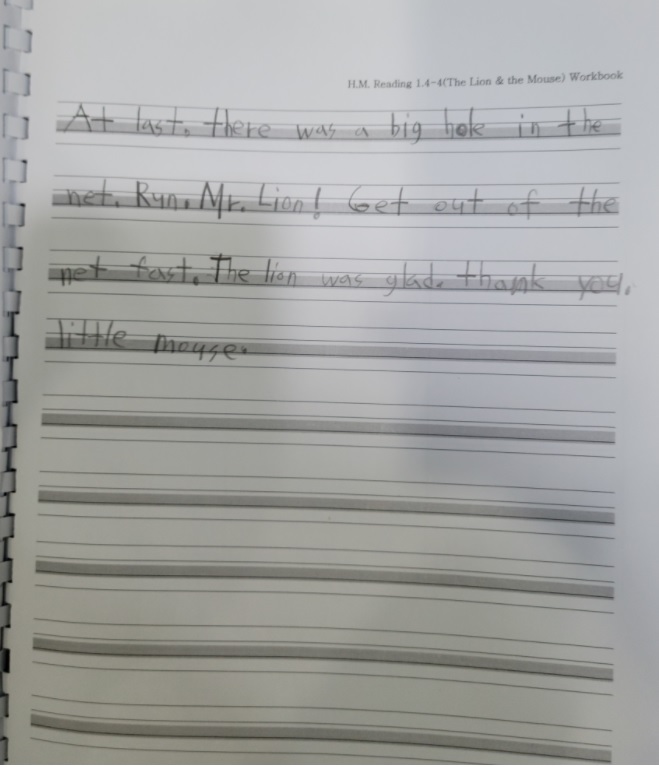 H.M. Reading 1.4-4(The Lion & the Mouse) Workbook
At last, there was a big hole in the
net. Run, Mr. Lion! Get out of the
net fast. The lion was glad. thank you,
little mouse.